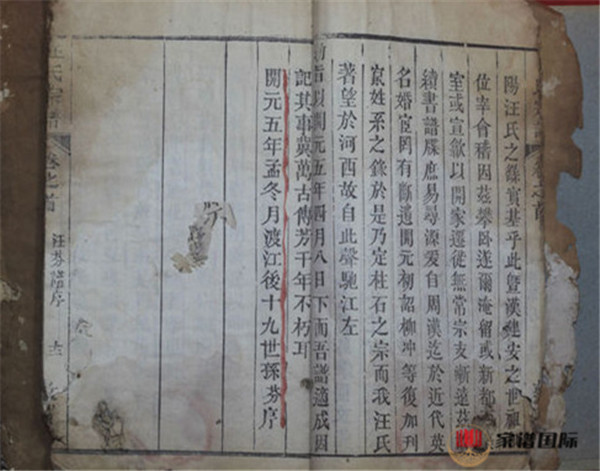 陽汪氏之錄實基乎此曁漢建安之世
位宰會稽因茲攀臥遂爾淹留或新都
室或宣歙以開家遷徙無常宗支漸遠茲
績書譜牒庶易尋源爰自周漢迄於近代英
名婚宦罔有斷遺開元初詔柳冲等復加刋
姓系之錄於是乃定柱石之宗而我汪氏
著望於河西故自此聲馳江左
旨以開元五年四月八日下而吾譜適成因
記其事冀萬古傳芳千年不朽耳
開元五年孟冬月渡江後十九世孫芬序
汪氏宗譜
卷之首
汪芬譜序
家谱国际